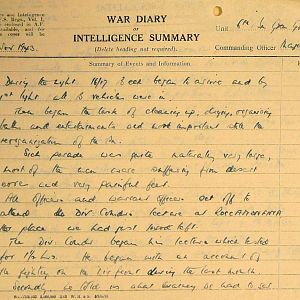 WAR DIARY
or
INTELLIGENCE SUMMARY
(Delete heading not required).
and Intelligence
F.S. Regs., Vol. I.
contained in A.F.
available, and for
cover will be
Nov 1943.
Unit
Commanding Officer
Summary of Events and Information.
During the night 16/17 Scot began to arrive and by
1st light all vehicles were in.
Then began the task of cleaning up, drying, organising
baths and entertainments and most important also the
reorganisation of the Bn.
Sick parade was quite naturally very large,
most of the men were suffering from desert
sores and very painful feet.
All officers and warrant officers set off to
attend the Div. Comdr's lecture at ROCCAMONFINA
the place we had just moved left.
The Div. Comdr began his lecture which lasted
for 1½ hrs. He began with an account of
the fighting on the Div front during the last month.
Secondly he told us what